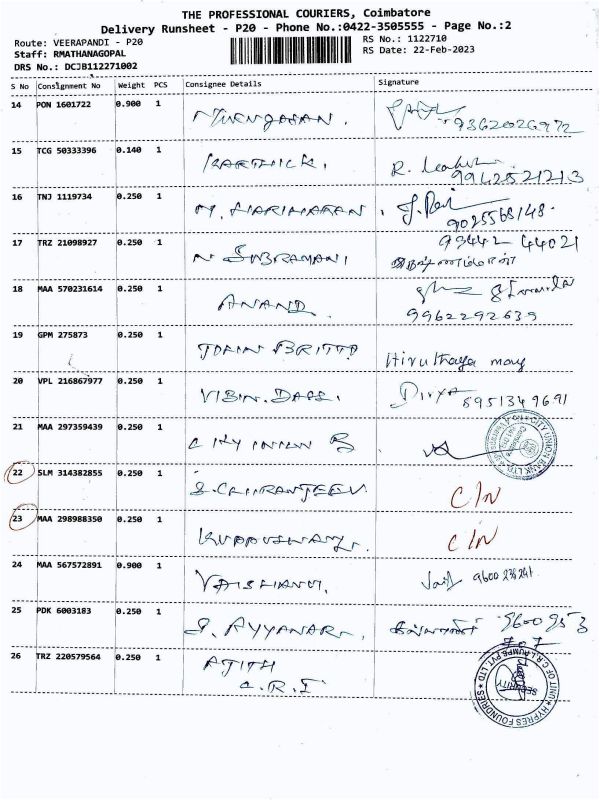 THE PROFESSIONAL COURIERS, Coimbatore
Delivery Runsheet - P20 - Phone No.:0422-3505555 - Page No.:2
Route: VEERAPANDI - P20
RS No.: 1122710
Staff: RMATHANAGOPAL
RS Date: 22-Feb-2023
DRS No.: DCJB112271002
S No Consignment No Weight PCS Consignee Details Signature
14 PON 1601722 0.900 1
9362026972
15 TCG 50333396 0.140 1 KARTHICK. R.
9942521213
16 TNJ 1119734 0.250 1 M. HARIHARAN.
9025568148.
17 TRZ 21098927 0.250 1 N SUBRAMANI. 93442 44021
18 MAA 570231614 0.250 1 ANAND.
9962292639
19 GPM 275873 0.250 1 JOHN BRITTO Hiruthaya mary
20 VPL 216867977 0.250 1 VIBIN. DASS. Divya 8951349691
21 MAA 297359439 0.250 1 CITY UNION B
CITY UNION BANK LTD
22 SLM 314382855 0.250 1 S. CHIRANJEEVI C/N
23 MAA 298988350 0.250 1 KUPPUSWAMY. C/N
24 MAA 567572891 0.900 1 VAISHANVI. 9600
25 PDK 6003183 0.250 1 S. AYYANAR. 9600
707
26 TRZ 220579564 0.250 1 AJITH
C.R.I
UNIT OF C.R.I. PUMPS PVT. LTD
SECURITY
HYPRES FOUNDRIES